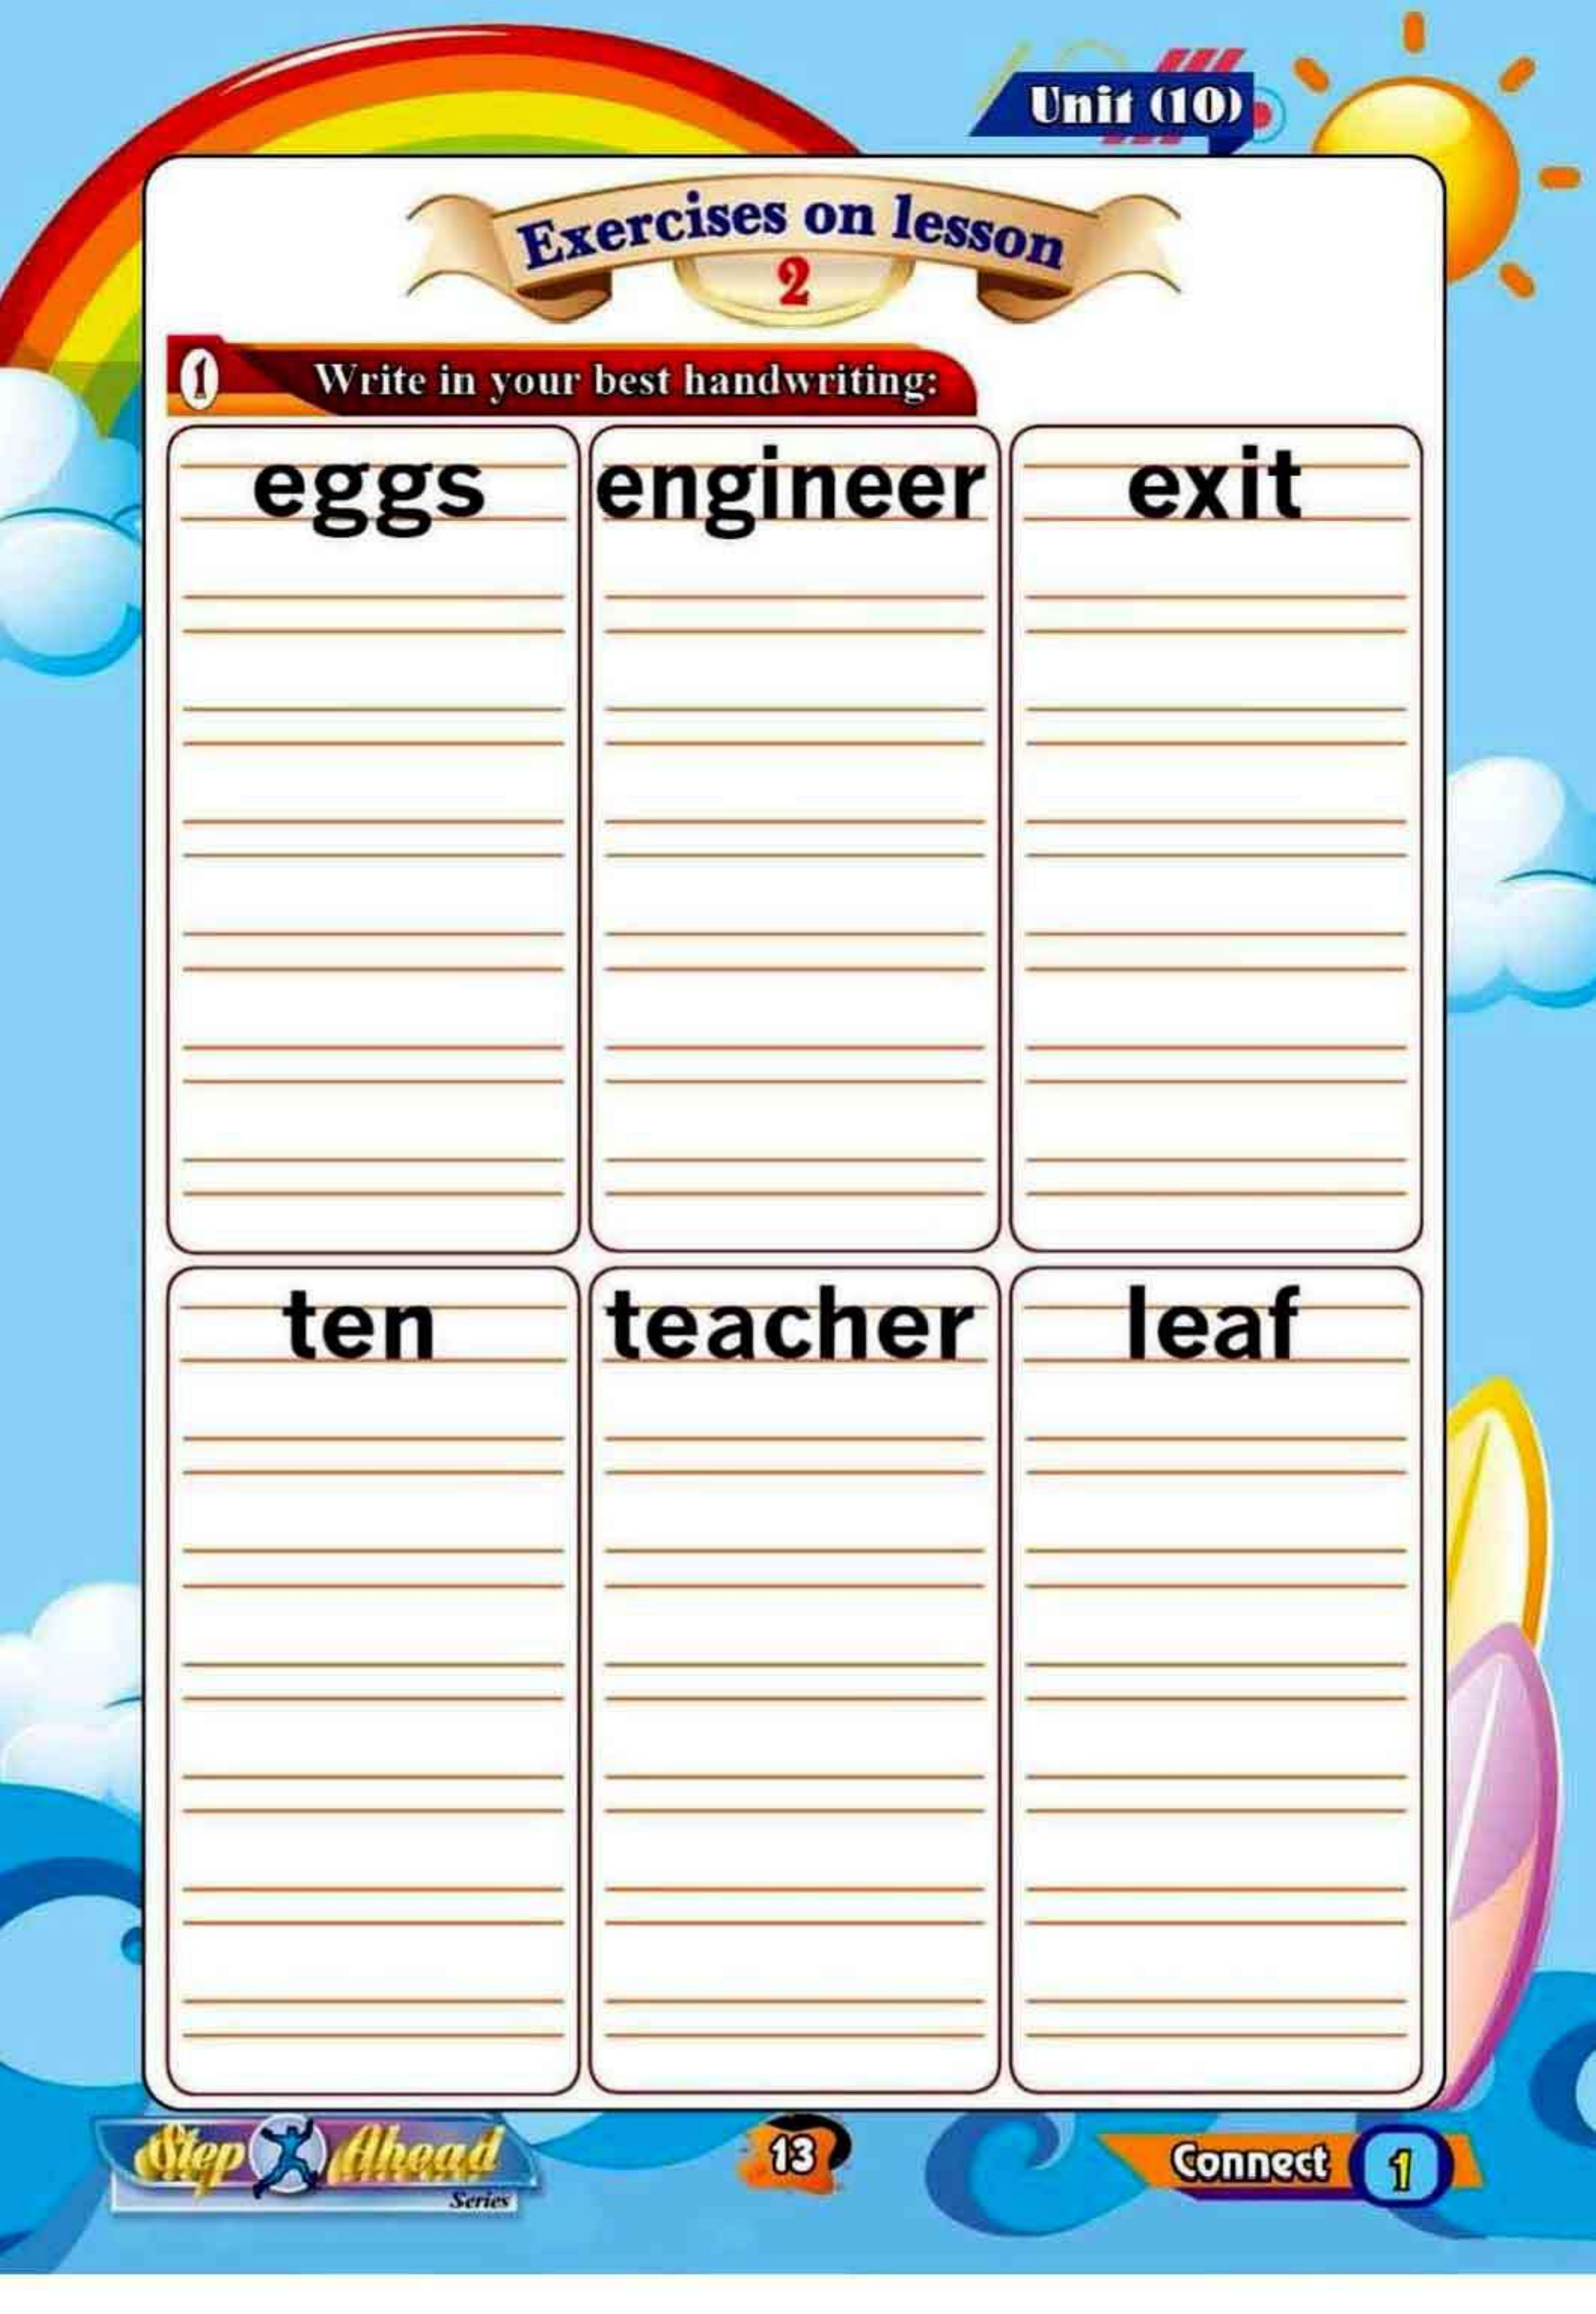 Unit (10)
Exercises on lesson
2
1 Write in your best handwriting:
eggs engineer exit
ten teacher leaf
Step Ahead
Series
13
Connect 1